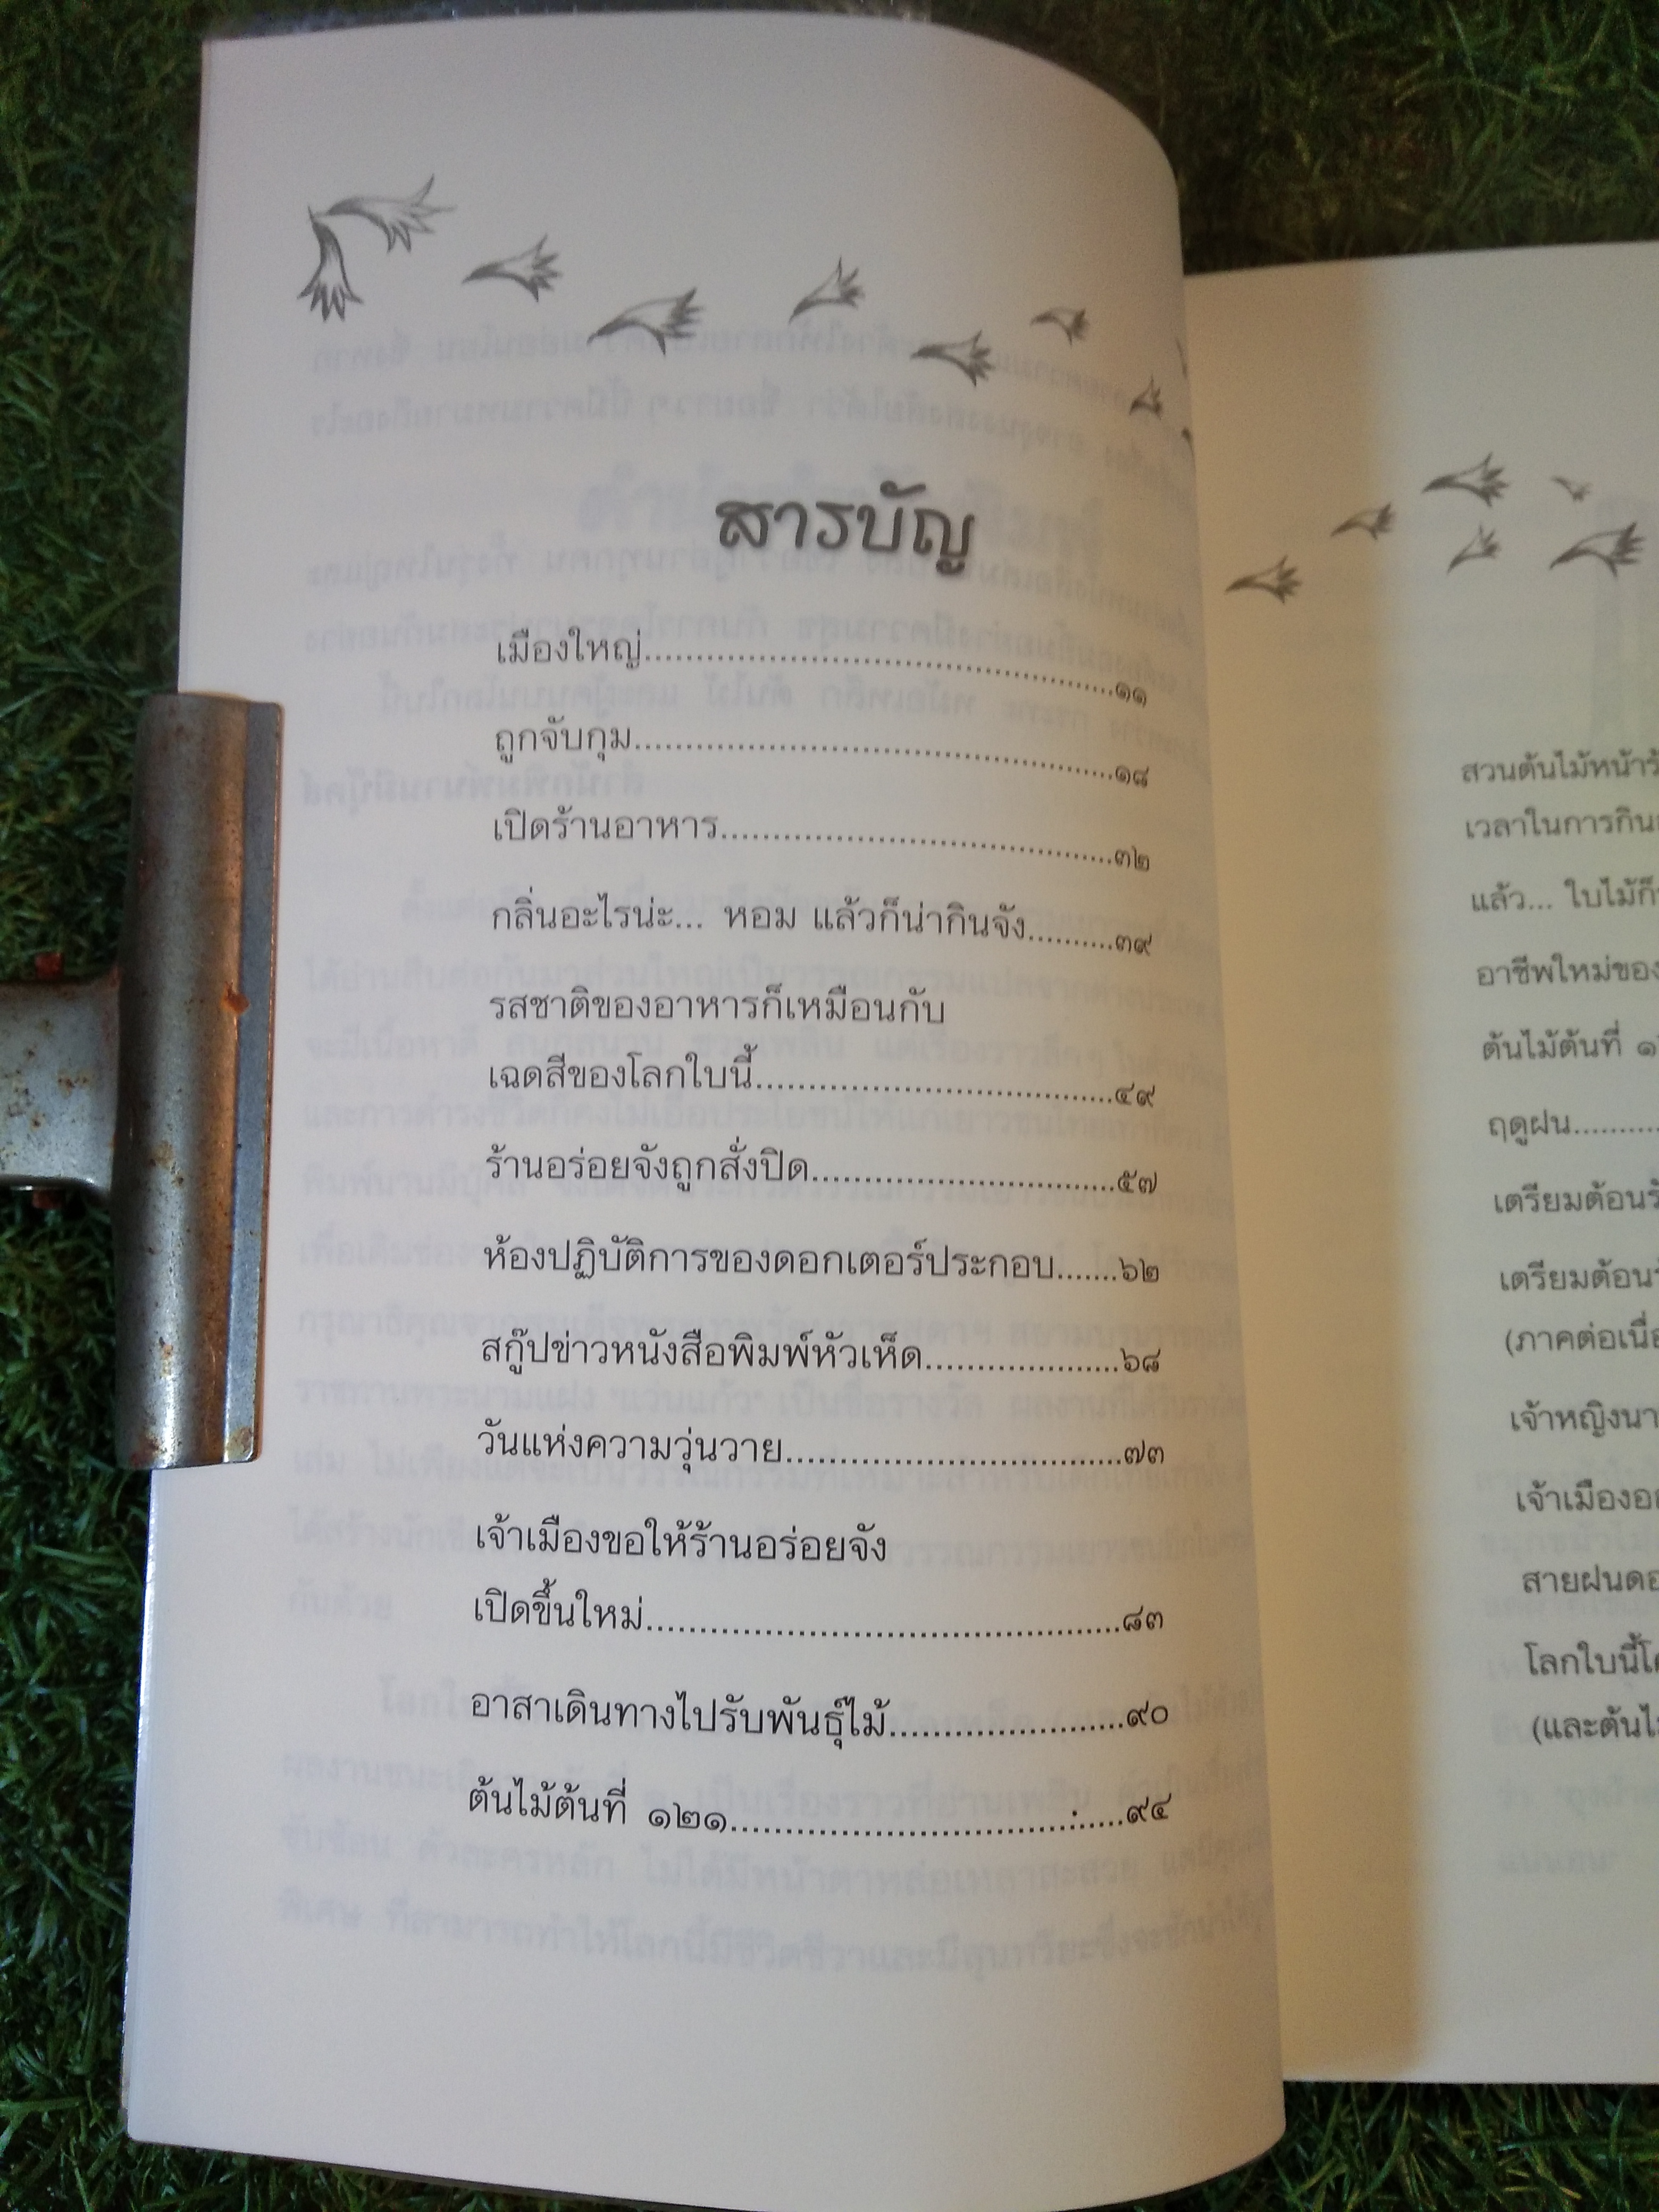 สารบัญ
เมืองใหญ่.............................................๑๑
ถูกจับกุม..............................................๑๘
เปิดร้านอาหาร......................................๓๒
กลิ่นอะไรน่ะ... หอม แล้วก็น่ากินจัง..........๓๙
รสชาติของอาหารก็เหมือนกับ
เฉดสีของโลกใบนี้..................................๔๙
ร้านอร่อยจังถูกสั่งปิด.............................๕๗
ห้องปฏิบัติการของดอกเตอร์ประกอบ.......๖๒
สกู๊ปข่าวหนังสือพิมพ์หัวเห็ด...................๖๘
วันแห่งความวุ่นวาย................................๗๓
เจ้าเมืองขอให้ร้านอร่อยจัง
เปิดขึ้นใหม่.............................................๘๓
อาสาเดินทางไปรับพันธุ์ไม้......................๙๐
ต้นไม้ต้นที่ ๑๒๑.....................................๙๔
สวนต้นไม้หน้า
เวลาในการกิน
แล้ว... ใบไม้ก็
อาชีพใหม่ของ
ต้นไม้ต้นที่
ฤดูฝน..........
เตรียมต้อน
เตรียมต้อน
(ภาคต่อเนื่อ
เจ้าหญิง
เจ้าเมือง
สายฝน
โลกใบนี้
(และต้น